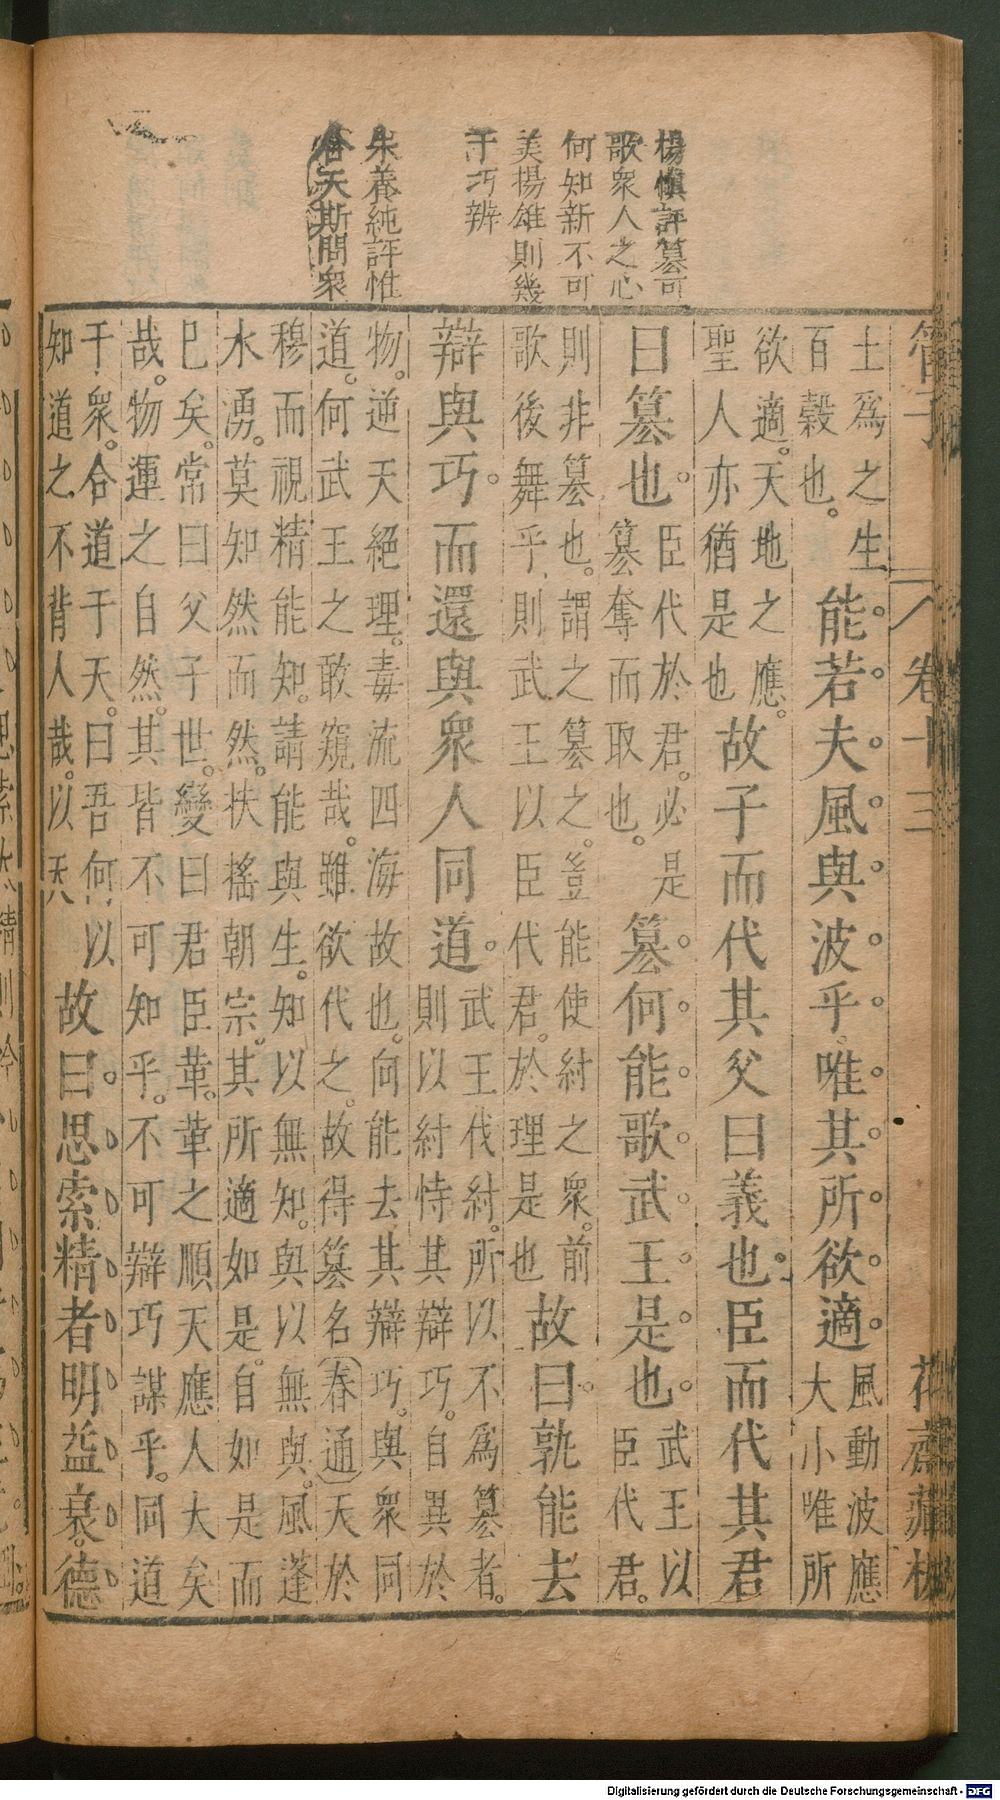 楊慎評簒可
歌衆人之心
何知新不可
美揚雄則幾
于巧辨
朱養純評惟
合天斯間衆
管子 卷十三 花齋藏板
土爲之生
百穀也。
能若夫風與波乎。唯其所欲適
風動波應
大小唯所
欲適。天地之應。
聖人亦猶是也
故子而代其父曰義也。臣而代其君
曰簒也。
臣代於君。必是
簒奪而取也。
簒何能歌武王是也
武王以
臣代君。
則非簒也。謂之簒之。豈能使紂之衆。前
歌後舞乎。則武王以臣代君。於理是也
故曰。孰能去
辯與巧。而還與衆人同道。
武王伐紂。所以不爲簒者。
則以紂恃其辯巧。自異於
物。逆天絕理。毒流四海故也。向能去其辯巧。與衆同
道。何武王之敢窺哉。雖欲代之。故得簒名春通天於
穆而視精能知。請能與生。知以無知。與以無與。風蓬
水湧。莫知然而然。扶搖朝宗。其所適如是。自如是而
巳矣。常曰父子世。變曰君臣革。革之順天應人大矣
哉。物運之自然。其皆不可知乎。不可辯巧謀乎。同道
于衆。合道于天。曰吾何以
知道之不背人哉。以天
故曰。思索精者明益衰。德
Digitalisierung gefördert durch die Deutsche Forschungsgemeinschaft - DFG